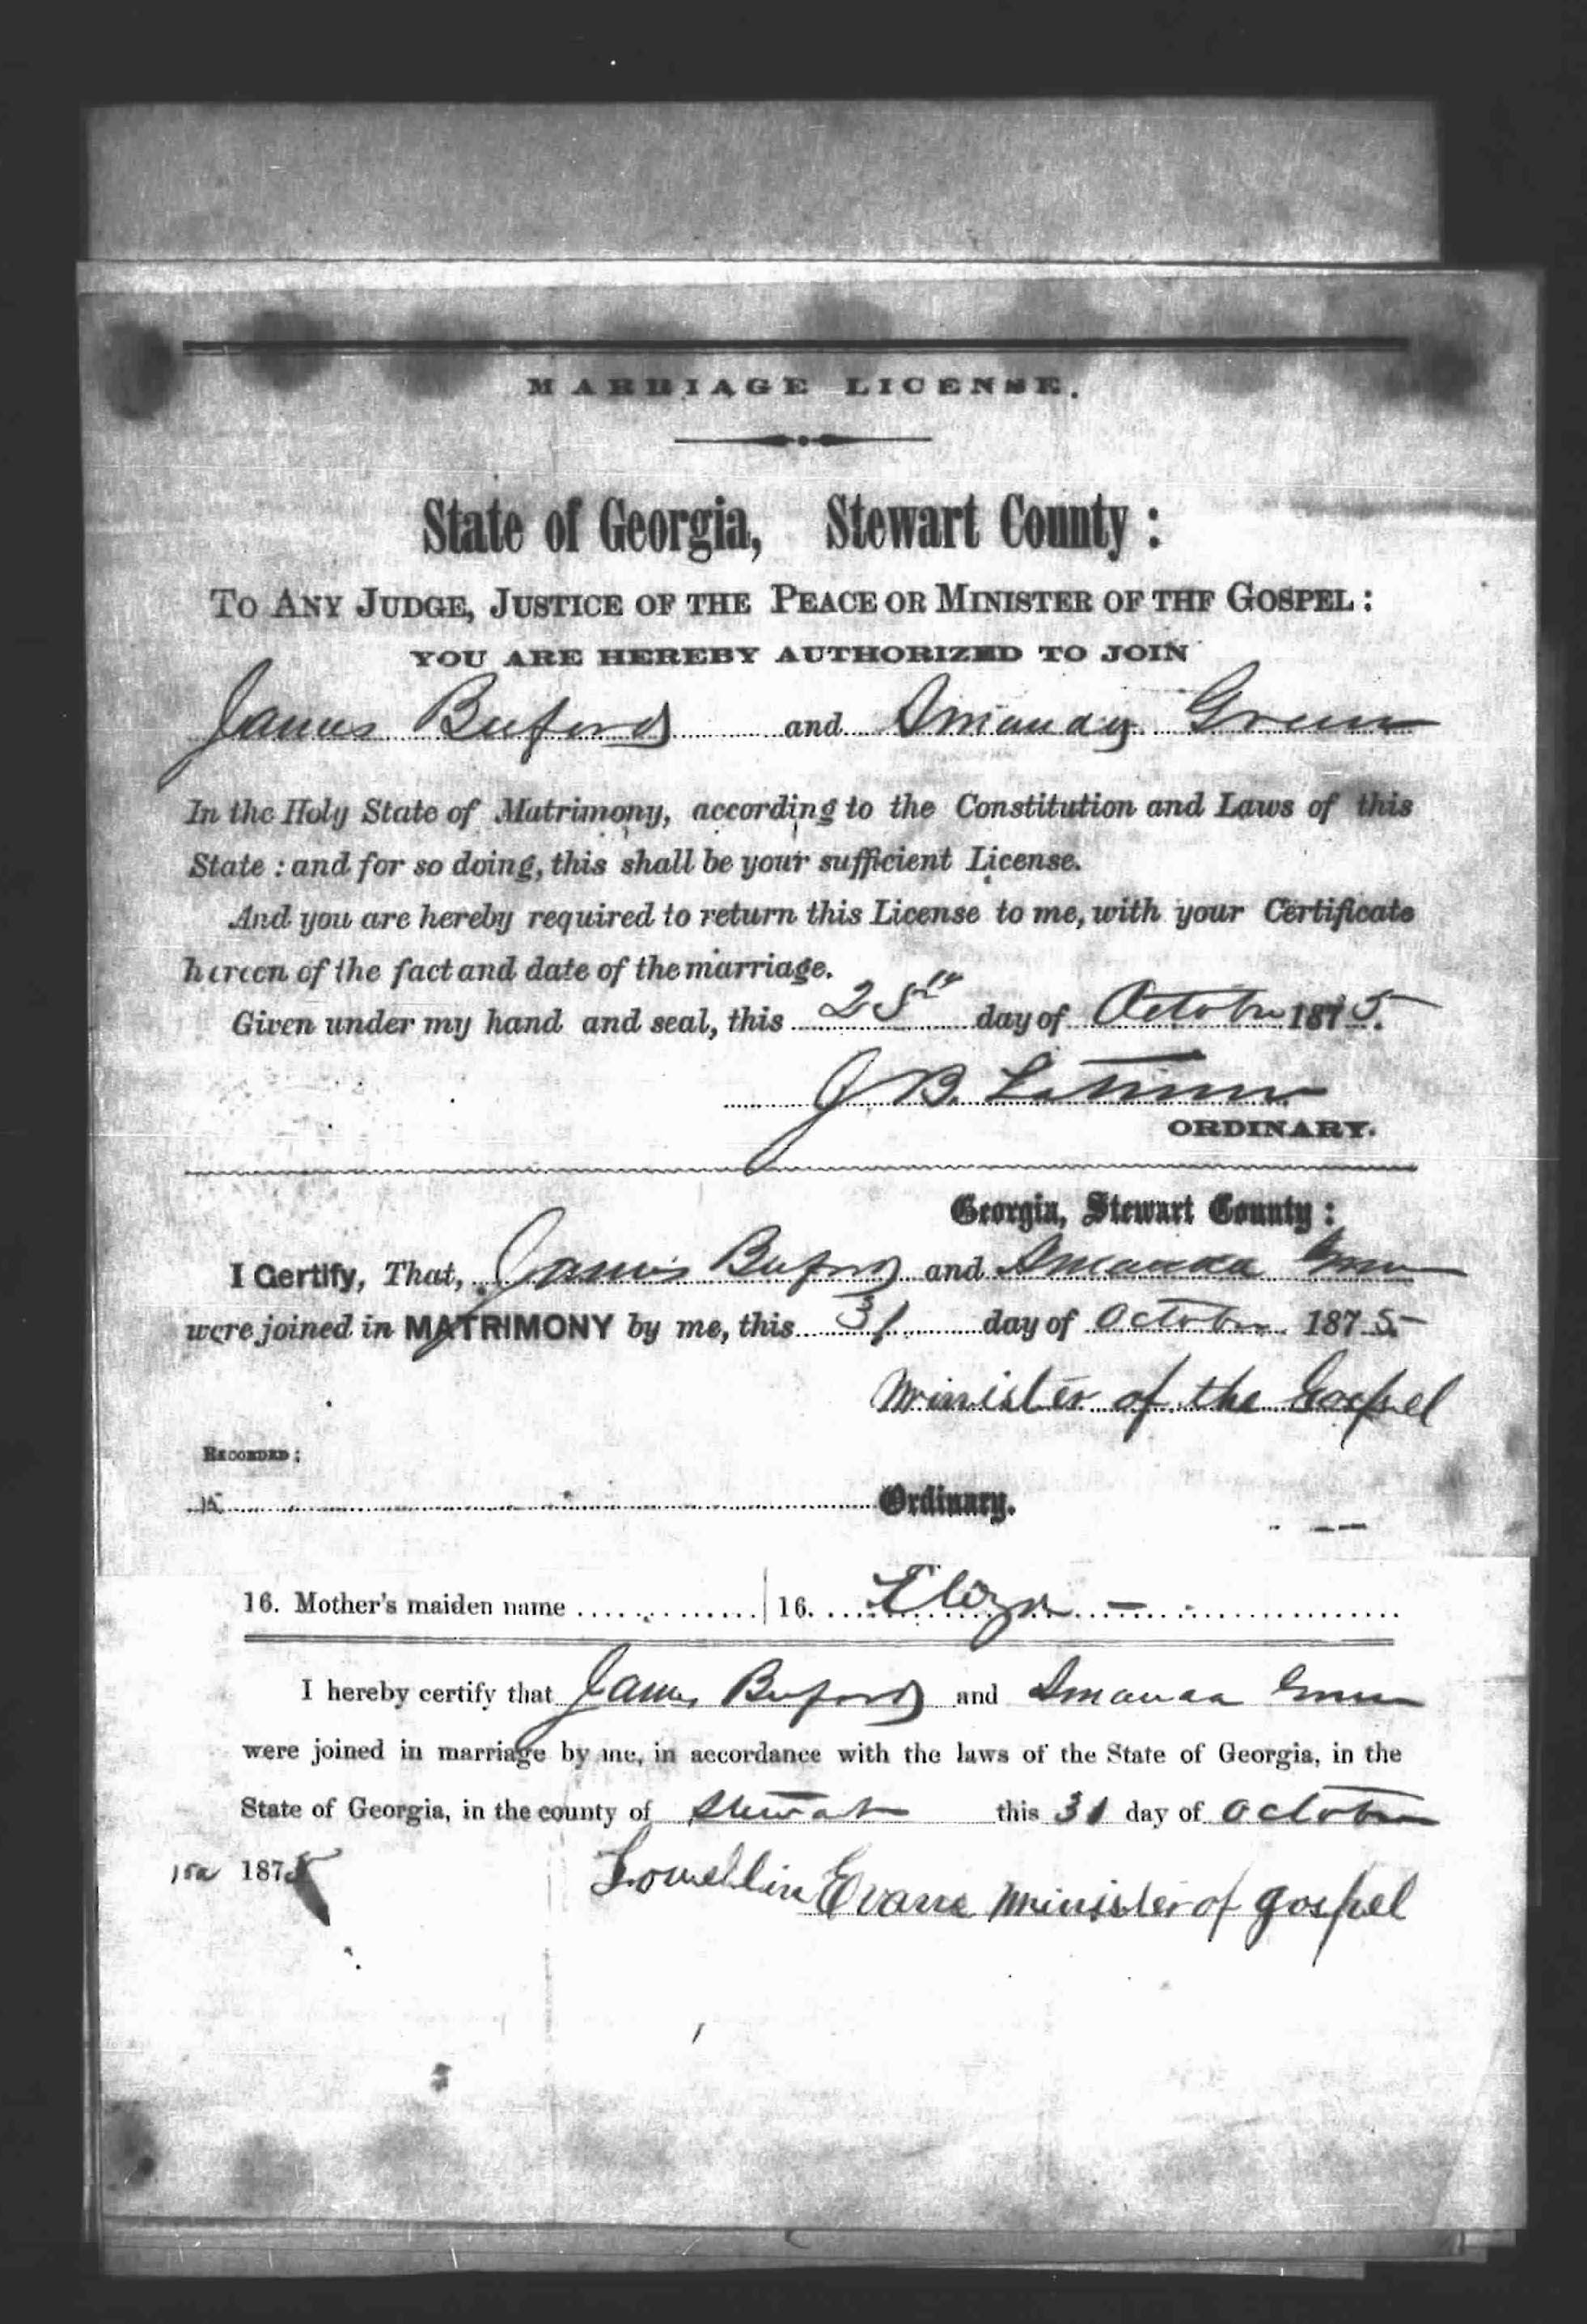 MARRIAGE LICENSE.
State of Georgia, Stewart County :
TO ANY JUDGE, JUSTICE OF THE PEACE OR MINISTER OF THE GOSPEL :
YOU ARE HEREBY AUTHORIZED TO JOIN
James Buford and Amanda Green
In the Holy State of Matrimony, according to the Constitution and Laws of this
State : and for so doing, this shall be your sufficient License.
And you are hereby required to return this License to me, with your Certificate
hereon of the fact and date of the marriage.
Given under my hand and seal, this day of October 1875.
J. B. Latimer
ORDINARY.
Georgia, Stewart County :
I Certify, That, James Buford and Amanda Green
were joined in MATRIMONY by me, this 31 day of October 1875
Minister of the Gospel
RECORDED ;
Ordinary.
16. Mother's maiden name 16. Eliza —
I hereby certify that James Buford and Amanda Green
were joined in marriage by me, in accordance with the laws of the State of Georgia, in the
State of Georgia, in the county of Stewart this 31 day of October
1875
Evans Minister of gospel